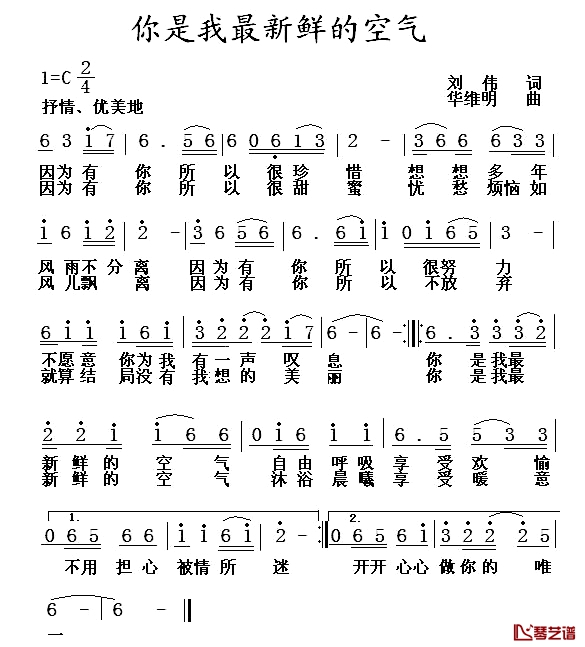 你是我最新鲜的空气
1=C 2/4
刘伟 词
抒情、优美地
华维明 曲
6 3 i 7 6. 5 6 6 0 6 1 3 2 - 3 6 6 6 5 6
因为有 你所以很珍惜 想想多年
因为有 你所以很甜蜜 忧愁烦恼如
i 6 i 2 2 - 3 6 5 6 6. 6 i i 0 i 6 5 3 -
风雨不分离 因为有你所以很努力
风儿飘离 因为有你所以不放弃
6 i i i 6 i 3 2 2 2 i 7 6 - 6 - 6. 3 3 3 2
不愿意你为我有一声叹息 你是我最
就算结局没有我想的美丽 你是我最
2 2 i i 6 6 0 i 6 i i 6. 5 5 3 3
新鲜的空气 自由呼吸享受欢愉
新鲜的空气 沐浴晨曦享受暖意
1. 2.
0 6 5 6 6 i i 6 i 2 - 0 6 5 6 i 3 2 2 2 5
不用担心被情所迷 开开心心做你的唯
6 - 6 -
一
琴艺谱